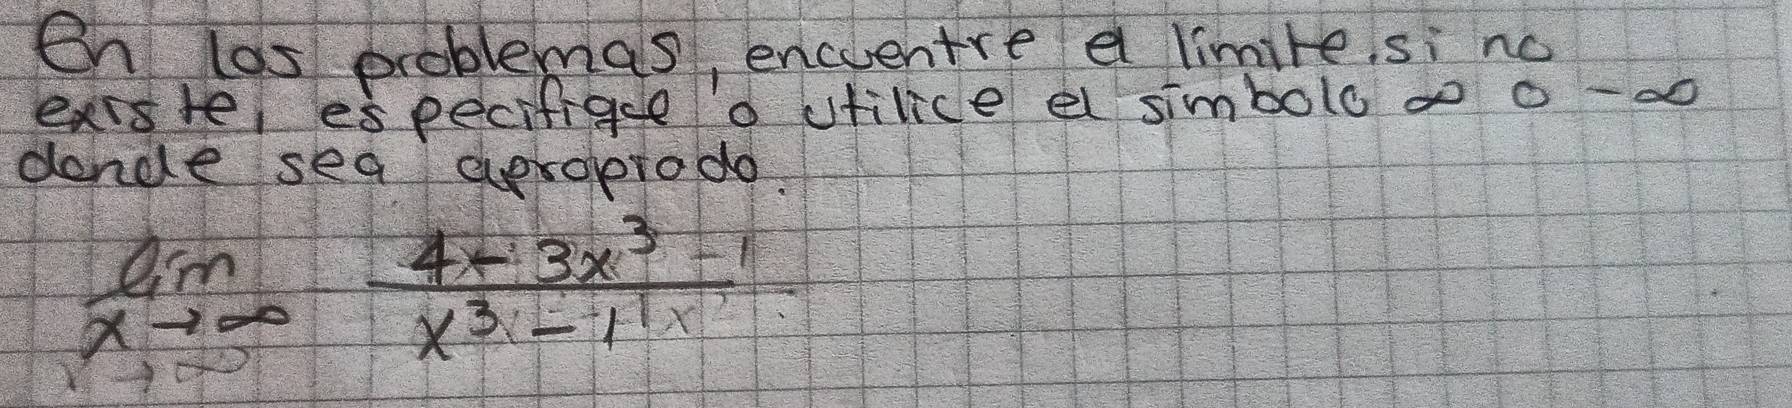 En los problemas, encuentre el limite, si no
existe, especifique o utilice el simbolo ∞ o -∞
donde sea apropiado.
lim 4x - 3x³ - 1
x → ∞ x³ - 1